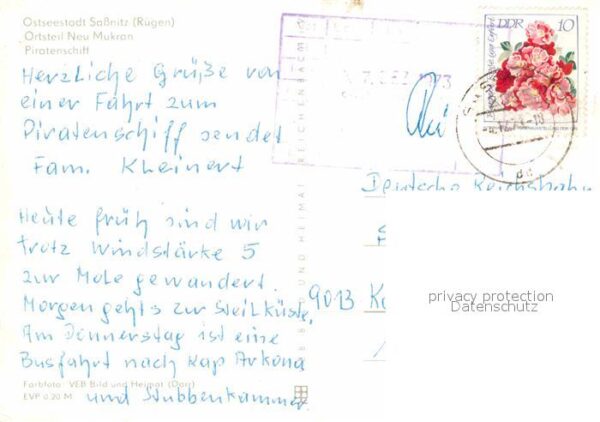 Ostseestadt Saßnitz (Rügen)
Ortsteil Neu Mukran
Piratenschiff
Herzliche Grüße von
einer Fahrt zum
Piratenschiff sendet
Fam. Kleinert
Heute früh sind wir
trotz Windstärke 5
zur Mole gewandert.
Morgen geht's zur Steilküste.
Am Donnerstag ist eine
Busfahrt nach Kap Arkona
und Stubbenkammer.
Farbfoto: VEB Bild und Heimat (Darr)
EVP 0.20 M
VEB BILD UND HEIMAT REICHENBACH
DDR 10
1973
Deutsche Reichsbahn
9013 K
privacy protection
Datenschutz